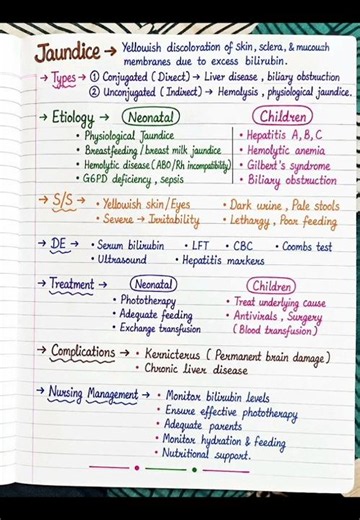 Jaundice → Yellowish discoloration of skin, sclera, & mucouth
membranes due to excess bilirubin.
→ Types → ① Conjugated (Direct) → Liver disease, biliary obstruction
② Unconjugated (Indirect) → Hemolysis, physiological jaundice.
→ Etiology → Neonatal Children
Physiological Jaundice • Hepatitis A, B, C
• Breastfeeding / breast milk jaundice • Hemolytic anemia
• Hemolytic disease (ABO/Rh incompatibility) • Gilbert's syndrome
• G6PD deficiency, sepsis • Biliary obstruction
→ S/S → • Yellowish skin/Eyes • Dark urine, Pale stools
• Severe → Irritability • Lethargy, Poor feeding
→ DE → • Serum bilirubin • LFT • CBC • Coombs test
• Ultrasound • Hepatitis markers
→ Treatment → Neonatal Children
• Phototherapy • Treat underlying cause
• Adequate feeding • Antivirals, Surgery
• Exchange transfusion (Blood transfusion)
→ Complications → • Kernicterus (Permanent brain damage)
• Chronic liver disease
→ Nursing Management → • Monitor bilirubin levels
• Ensure effective phototherapy
• Adequate parents
• Monitor hydration & feeding
• Nutritional support.